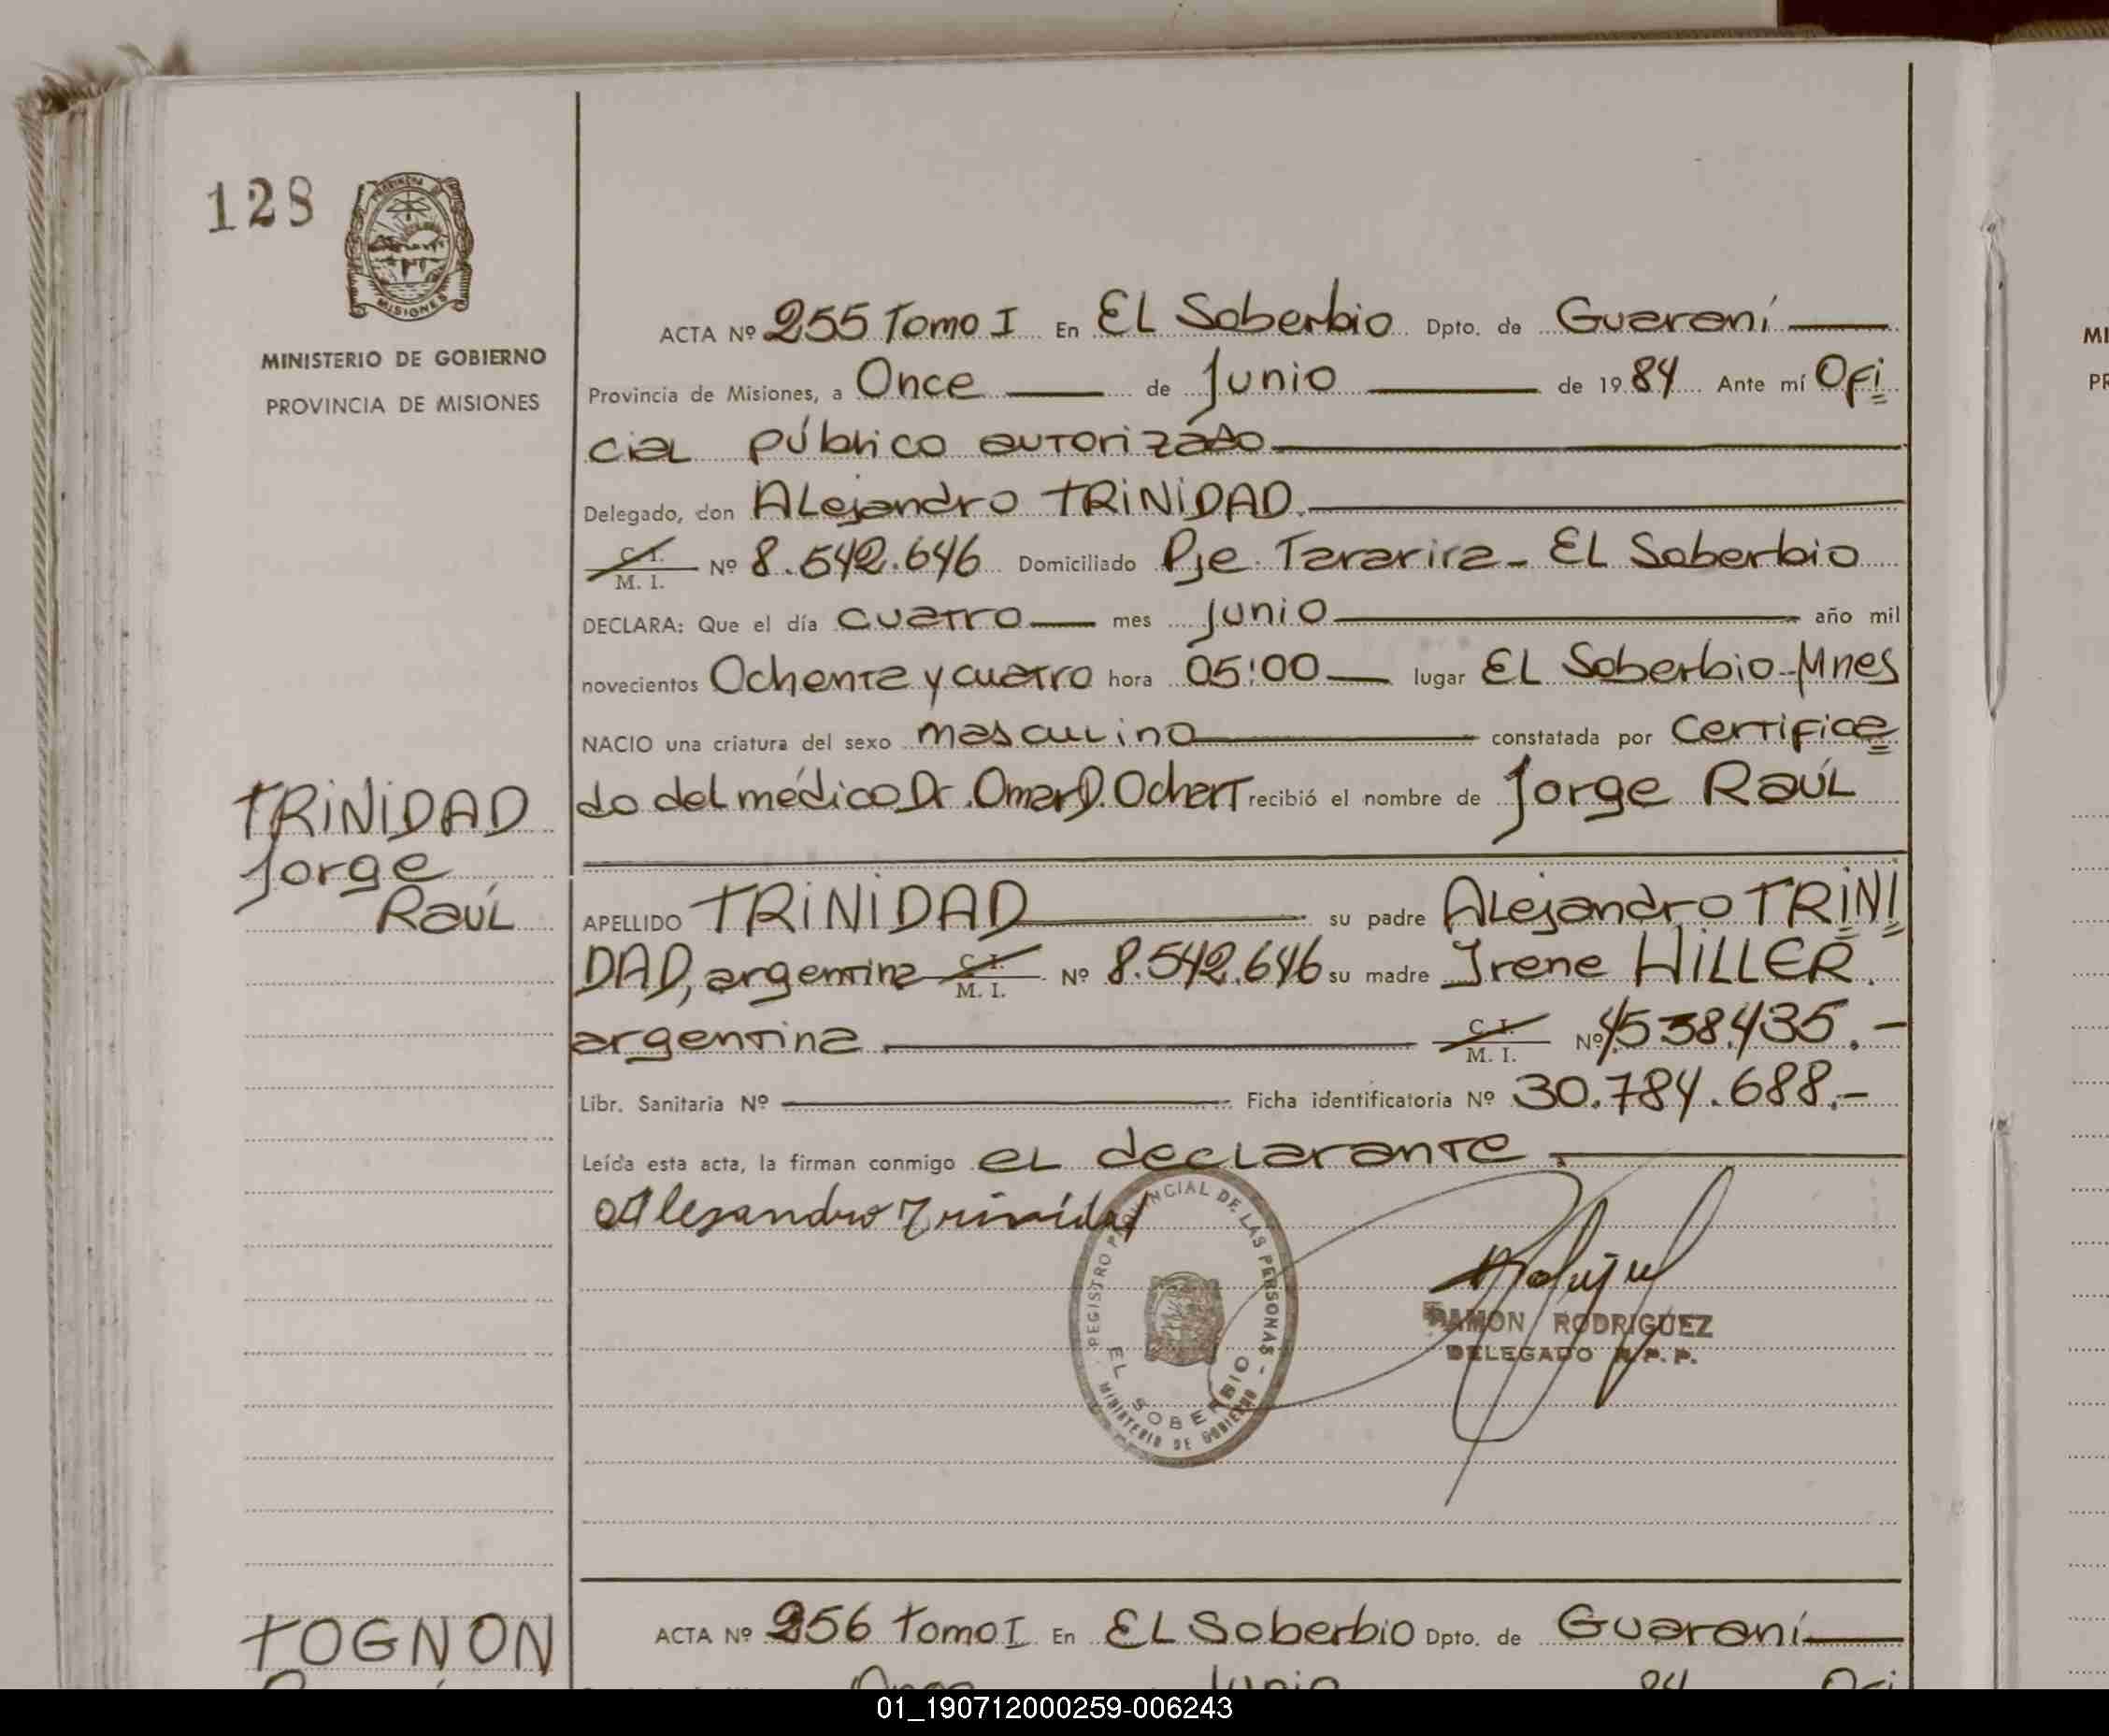 128
PROVINCIA DE
MISIONES
MINISTERIO DE GOBIERNO
PROVINCIA DE MISIONES
ACTA Nº 255 Tomo I En EL Soberbio Dpto. de Guaraní
Provincia de Misiones, a Once de Junio de 1984 Ante mí Ofi
cial público autorizado
Delegado, don Alejandro TRINIDAD.
C. I.
M. I. Nº 8.542.646 Domiciliado Pje. Tararira - EL Soberbio
DECLARA: Que el día cuatro mes junio año mil
novecientos Ochenta y cuatro hora 05:00 lugar EL Soberbio-Mnes
NACIO una criatura del sexo masculino constatada por Certifica
do del médico Dr. Omar D. Ochart recibió el nombre de Jorge Raúl
TRINIDAD
Jorge
Raúl
APELLIDO TRINIDAD su padre Alejandro TRINI
DAD, argentina C. I. M. I. Nº 8.542.646 su madre Irene HILLER.
argentina C. I. M. I. Nº 4.538.435.-
Libr. Sanitaria Nº Ficha identificatoria Nº 30.784.688.-
Leída esta acta, la firman conmigo el declarante.
Alejandro Trinidad
REGISTRO PROVINCIAL DE LAS PERSONAS -
EL SOBERBIO
MINISTERIO DE GOBIERNO
RAMON RODRIGUEZ
DELEGADO R.P.P.
TOGNON
ACTA Nº 256 Tomo I En EL Soberbio Dpto. de Guaraní
Once Junio 84 Ofi
MI
PR
01_190712000259-006243